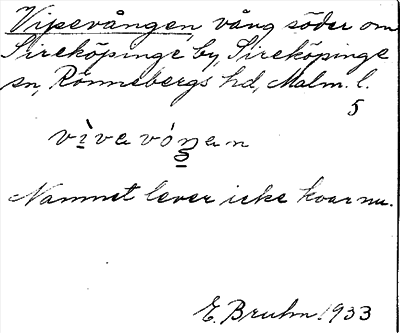 Vipevången, vång söder om
Sireköpinge by, Sireköpinge
sn, Rönnebergs hd, Malm. l.
5
Namnet lever icke kvar nu.
E. Bruhn 1933